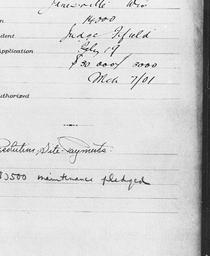 Janesville Wis
14000
dent Judge Ifield
pplication July 17
$30 000/3000
Mch 7/01
uthorized
esolution, Site-payments
$3500 maintenance pledged